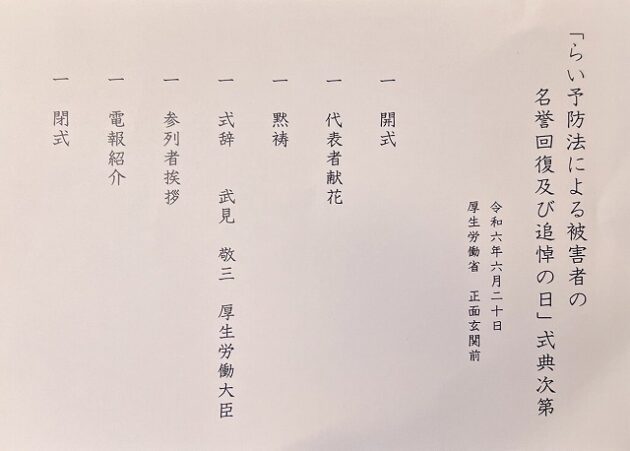 「らい予防法による被害者の
名誉回復及び追悼の日」式典次第
令和六年六月二十日
厚生労働省　正面玄関前
一　開式
一　代表者献花
一　黙祷
一　式辞　武見　敬三　厚生労働大臣
一　参列者挨拶
一　電報紹介
一　閉式